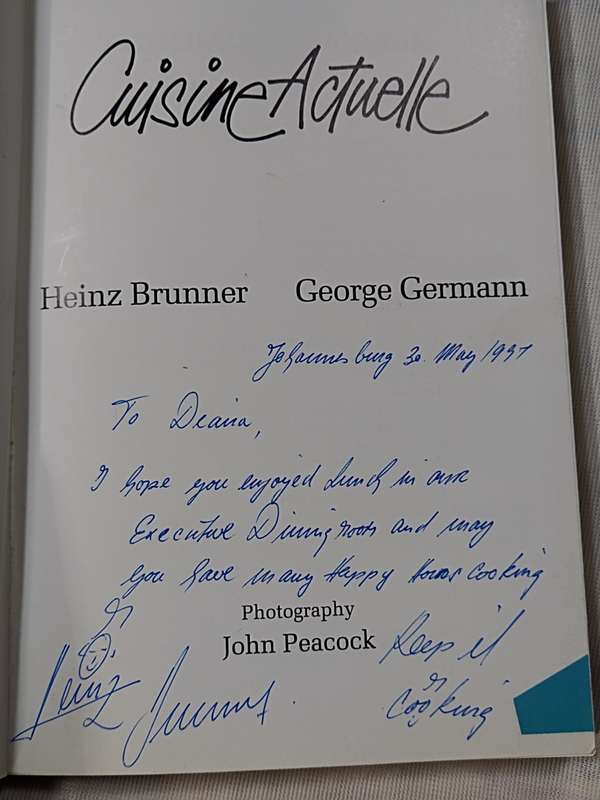 Cuisine Actuelle
Heinz Brunner George Germann
Johannesburg 30. May 1997
To Diana,
I hope you enjoyed Lunch in our
Executive Dining room and may
you have many Happy Hours cooking
Photography
John Peacock
Keep it
cooking
Heinz Brunner